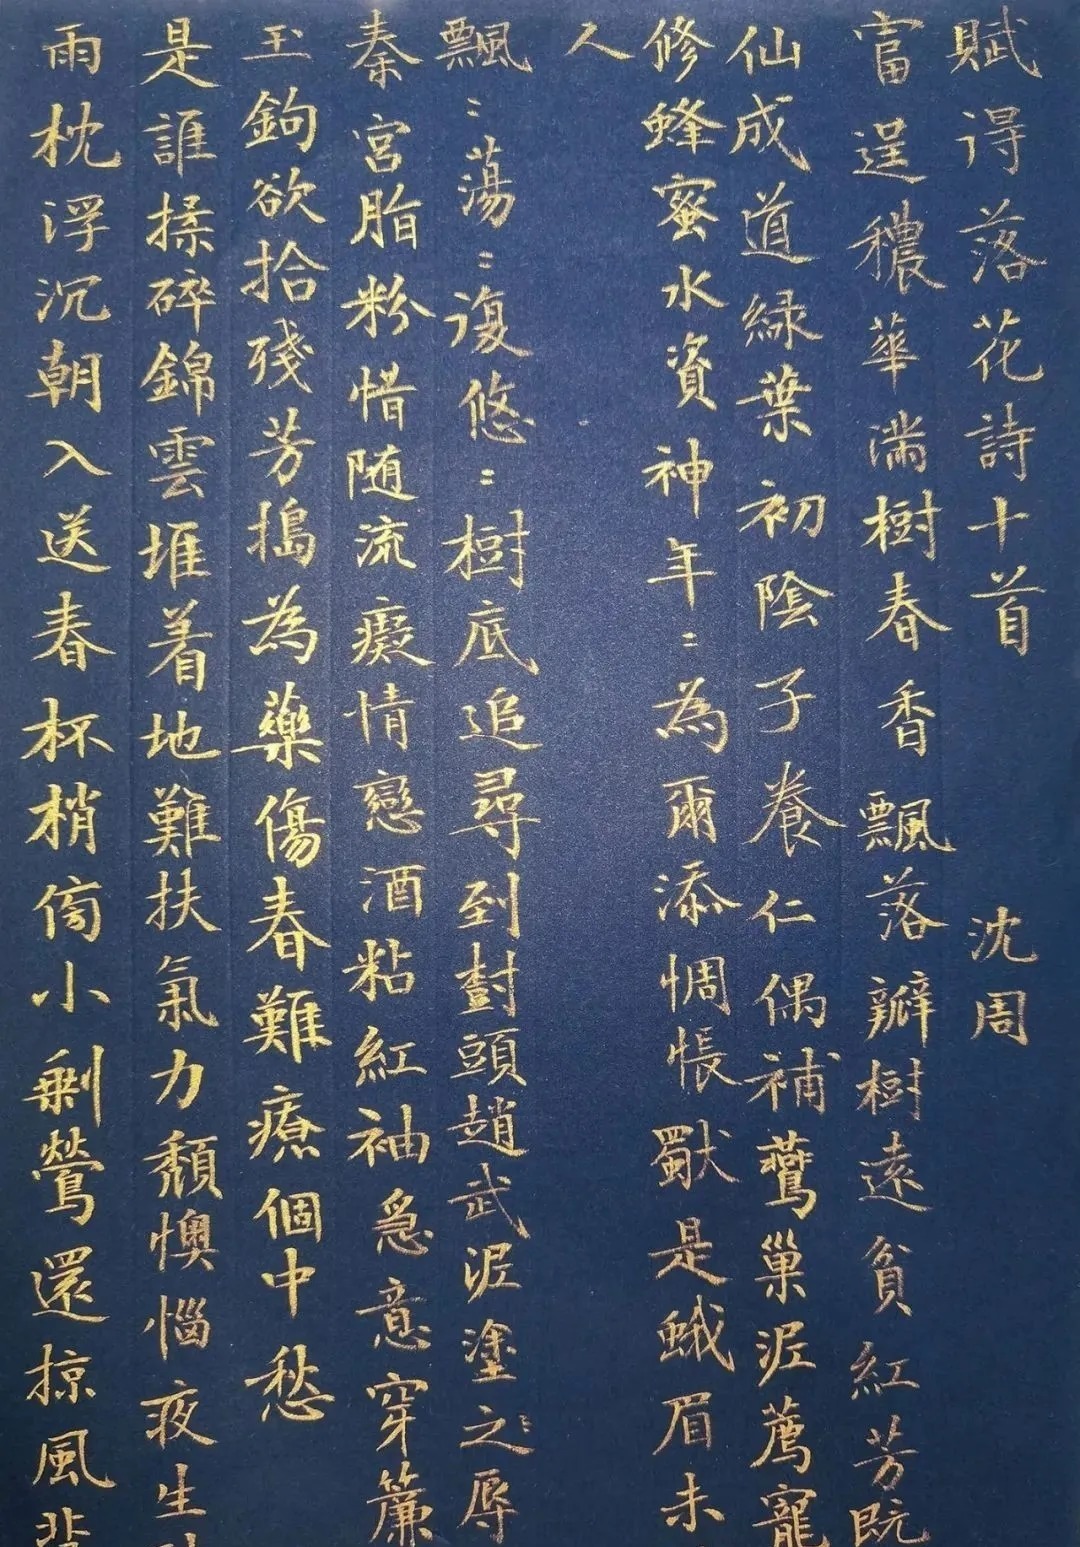 賦得落花詩十首 沈周
富逞穠華滿樹春香飄落瓣樹遠貧紅芳既
仙成道緑葉初陰子養仁偶補鷰巢泥薦寵
修蜂蜜水資神年〻為爾添惆悵獨是蛾眉未
人
飄〻蕩〻復悠〻樹底追尋到尌頭趙武泥塗之辱
秦宮脂粉惜随流癡情戀酒粘紅袖急意穿簾
玉鉤欲拾殘芳搗為藥傷春難療個中愁
是誰揉碎錦雲堆着地難扶氣力頹懊惱夜生
雨枕浮沉朝入送春杯梢傍小剩鶯還掠風